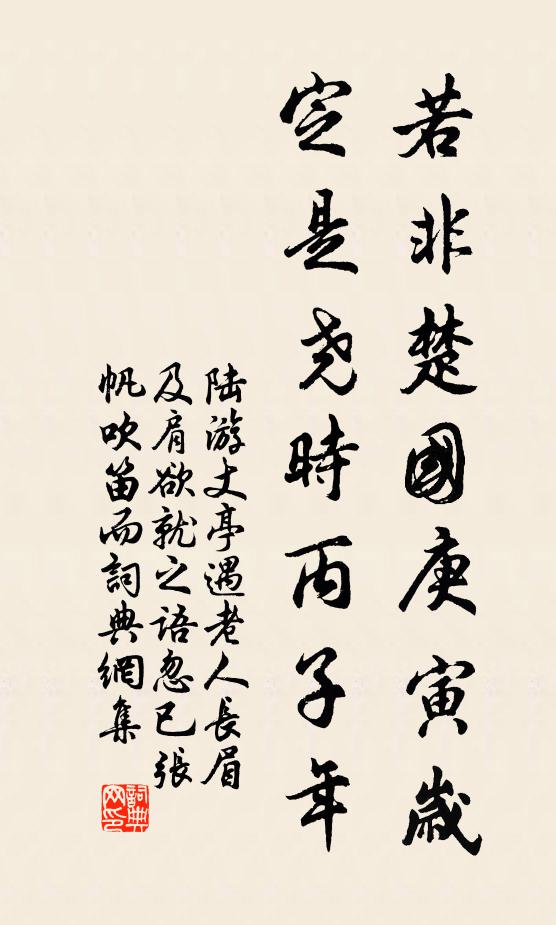 若非楚國庚寅歲
定是尧時丙子年
陆游丈亭遇老人長眉
及肩欲就之語忽已張
帆吹笛而詞典網集
詞典
网印